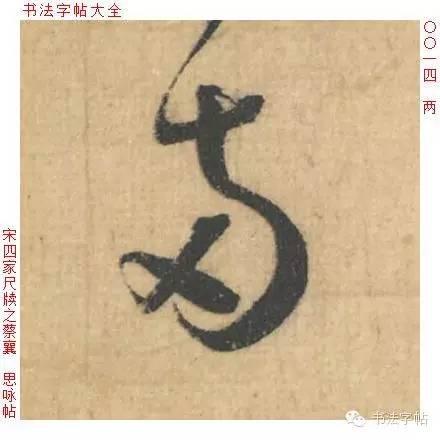 书法字帖大全
〇〇一四 两
两
宋四家尺牍之蔡襄 思咏帖
书法字帖